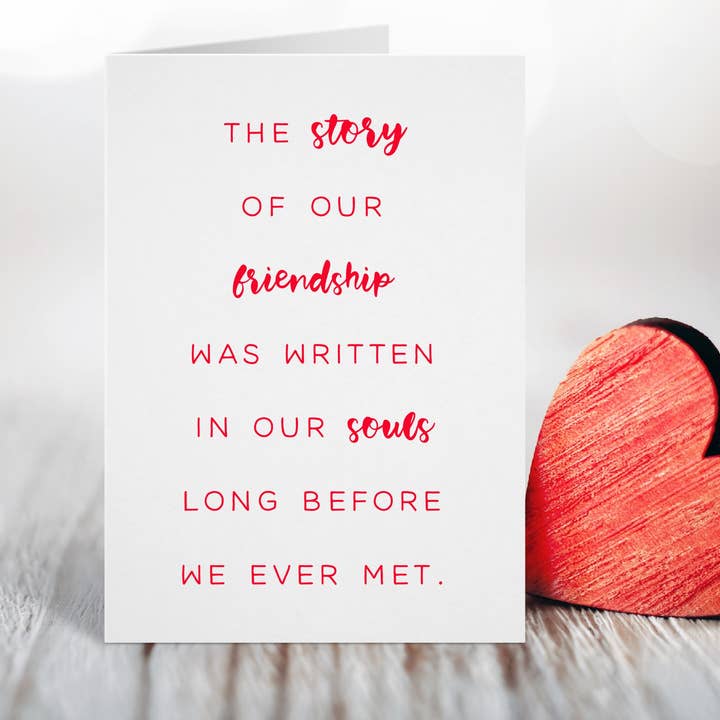 THE story
OF OUR
friendship
WAS WRITTEN
IN OUR souls
LONG BEFORE
WE EVER MET.